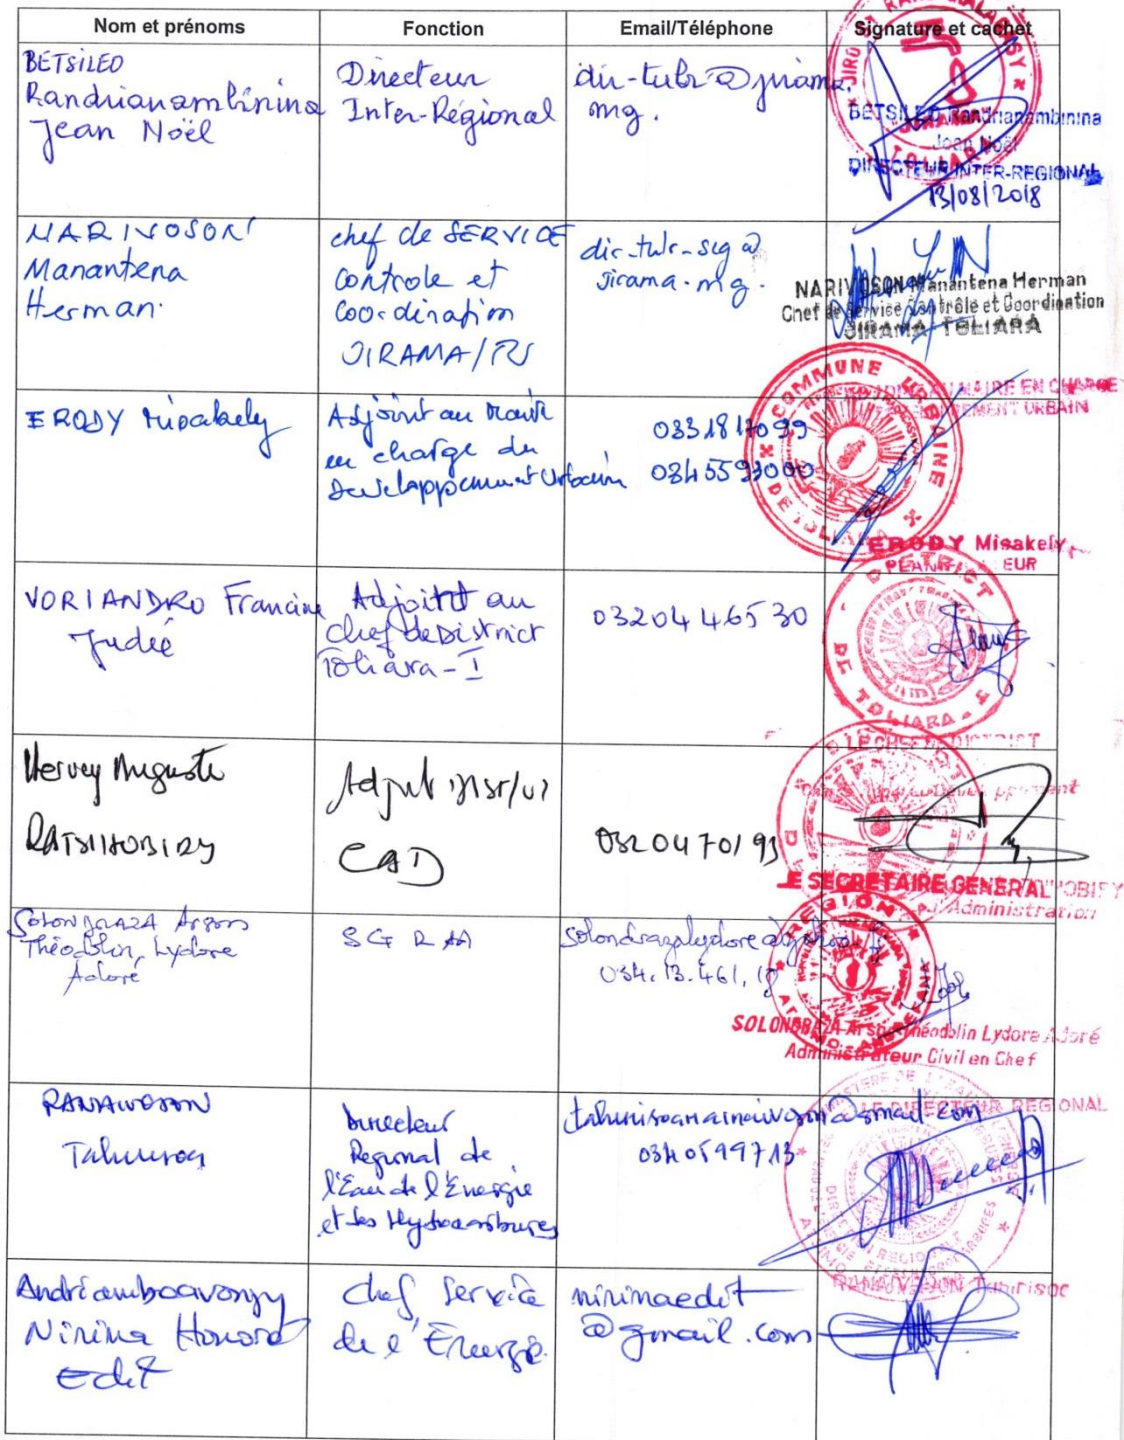 Nom et prénoms
Fonction
Email/Téléphone
Signature et cachet
BETSILEO
Randrianambinina
Jean Noël
Directeur
Inter-Régional
dir-tulr@jirama.
mg.
JIRO RANO MALAGASY
TOLIARA
BETSILEO Randrianambinina
Jean Noël
DIRECTEUR INTER-REGIONAL
13/08/2018
NARIVOSON
Manantena
Herman
chef de SERVICE
Controle et
Coordination
JIRAMA/
dir-tulr-seg@
jirama.mg.
NARIVOSON Manantena Herman
Chef de Service Contrôle et Coordination
JIRAMA TOLIARA
ERODY Misakely
Adjoint au Maire
en charge du
Developpement Urbain
0331817099
0345593000
COMMUNE URBAINE
DE TOLIARA
MAIRE EN CHARGE
URBAIN
ERODY Misakely
VORIANDRO Francine
Judée
Adjoint au
Chef de District
Toliara-I
0320446530
DISTRICT
DE TOLIARA - I
Hervey Auguste
RATSIHOBIRY
CAD
0320470193
LE CHEF DE DISTRICT
LE SECRETAIRE GENERAL
Administration
SOLONDRAZA Arson
Théodolin, Lydore
Adoré
SG RAA
034.13.461.
REGION
ATSIMO ANDREFANA
SOLONDRAZA Théodolin Lydore Adoré
Administrateur Civil en Chef
RANAIVOSON
Tahirisoa
Directeur
Regional de
l'Eau de l'Énergie
et des Hydrocarbures
tahirisoaranaivoson@gmail.com
0340599713
LE DIRECTEUR REGIONAL
RANAIVOSON Tahirisoa
Andriamboavonjy
Nirina Honoré
Edit
Chef Service
de l'Énergie
nirinaedit
@gmail.com